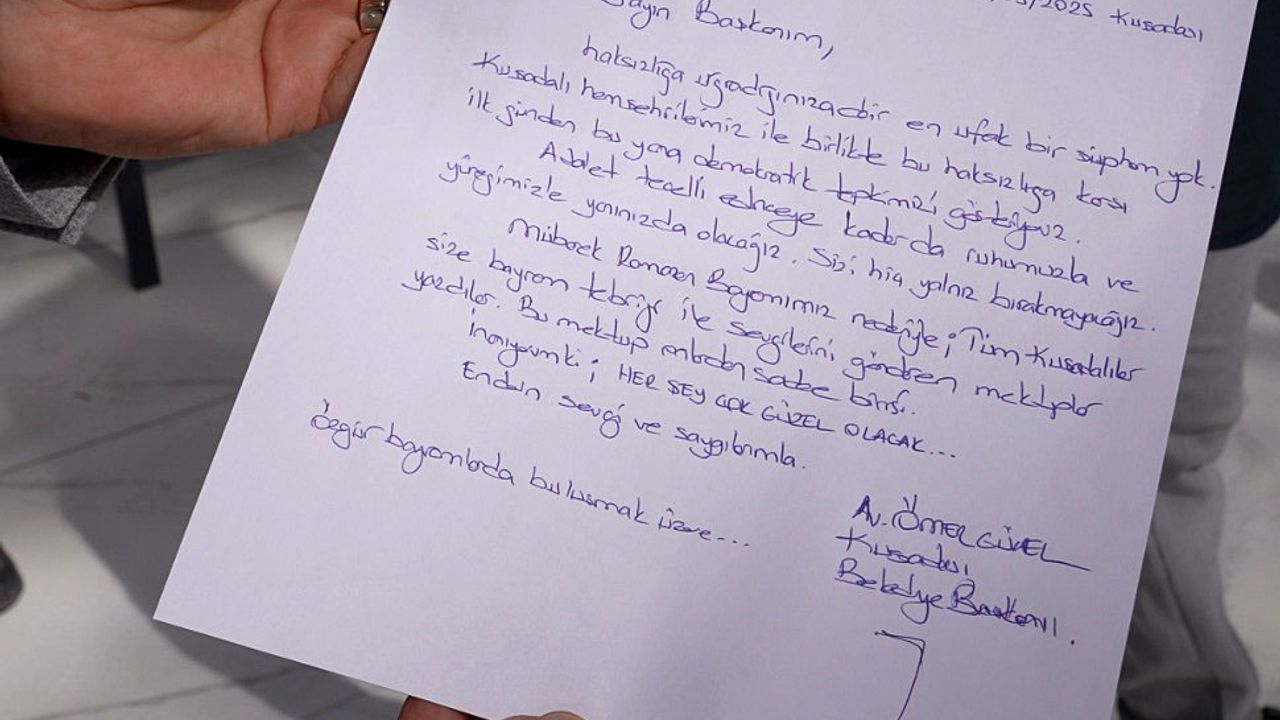 /2025 Kusadası
Sayın Başkanım,
haksızlığa uğradığınıza dair en ufak bir şüphem yok.
Kusadalı hemşehrilerimiz ile birlikte bu haksızlığa karşı
ilk günden bu yana demokratik tepkimizi gösteriyoruz.
Adalet tecelli edinceye kadar da ruhumuzla ve
yüreğimizle yanınızda olacağız. Sizi hiç yalnız bırakmayacağız.
Mübarek Ramazan Bayramımız nedeniyle; Tüm Kusadalılar
size bayram tebriği ile sevgilerini gönderen mektuplar
yazdılar. Bu mektup onlardan sadece birisi.
İnanıyorum ki; HER ŞEY ÇOK GÜZEL OLACAK...
En derin sevgi ve saygılarımla.
Özgür bayramlarda buluşmak üzere...
Av. ÖMER GÜNEL
Kusadası
Belediye Başkanı.